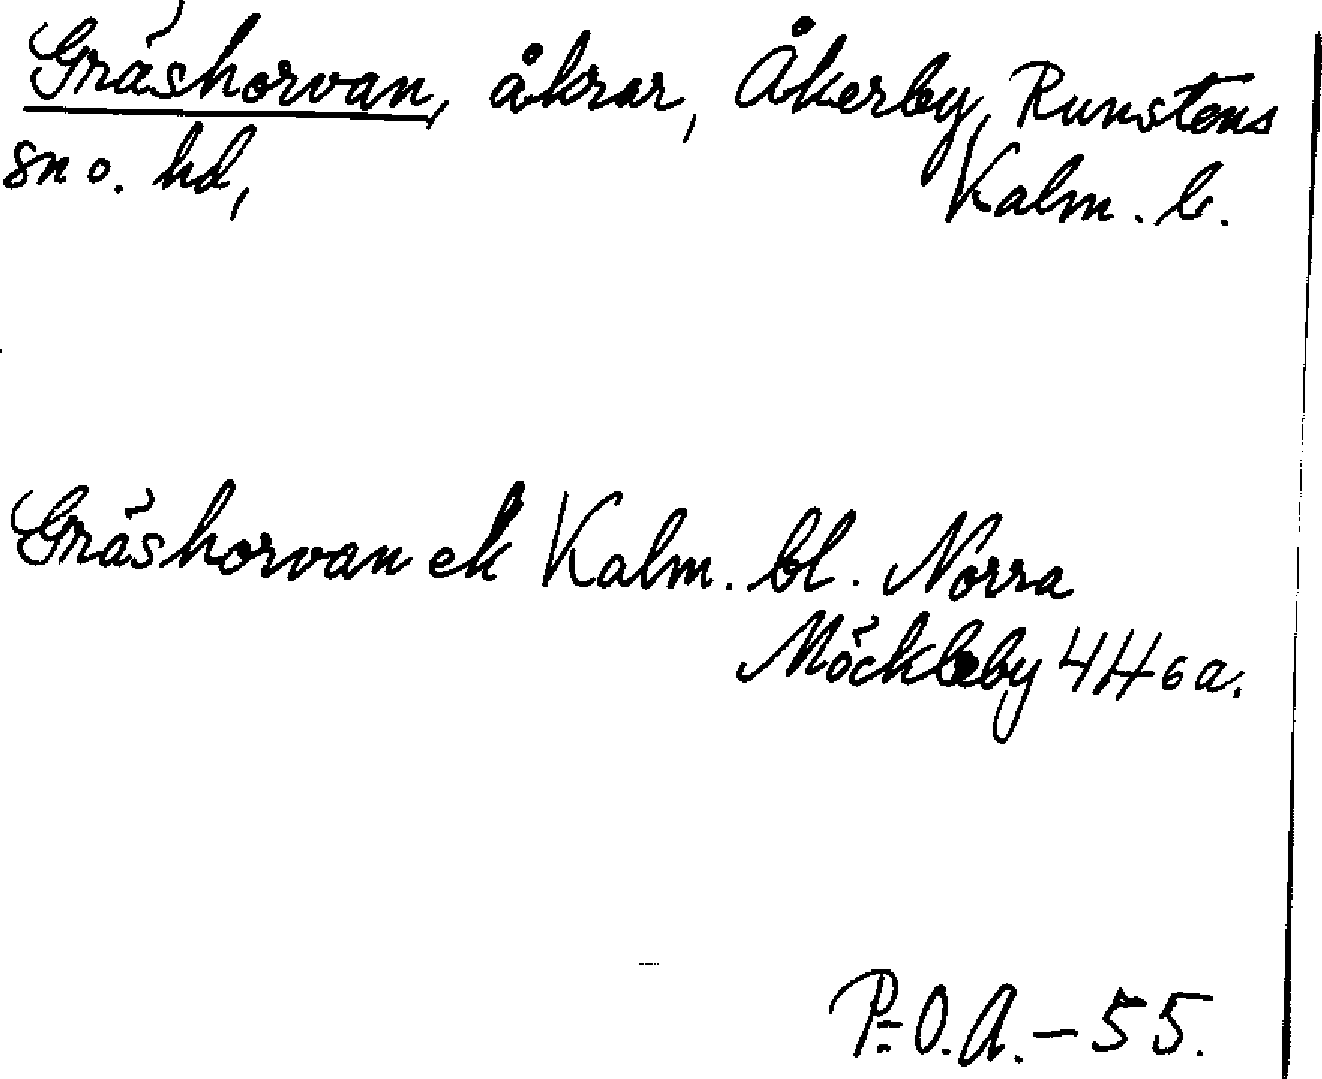 Gräshorvan, åkrar, Åkerby, Runstens
sn o. hd, Kalm. l.
Gräshorvan ek Kalm. bl. Norra
Möckleby 4H6a.
P.-O.A. - 55.